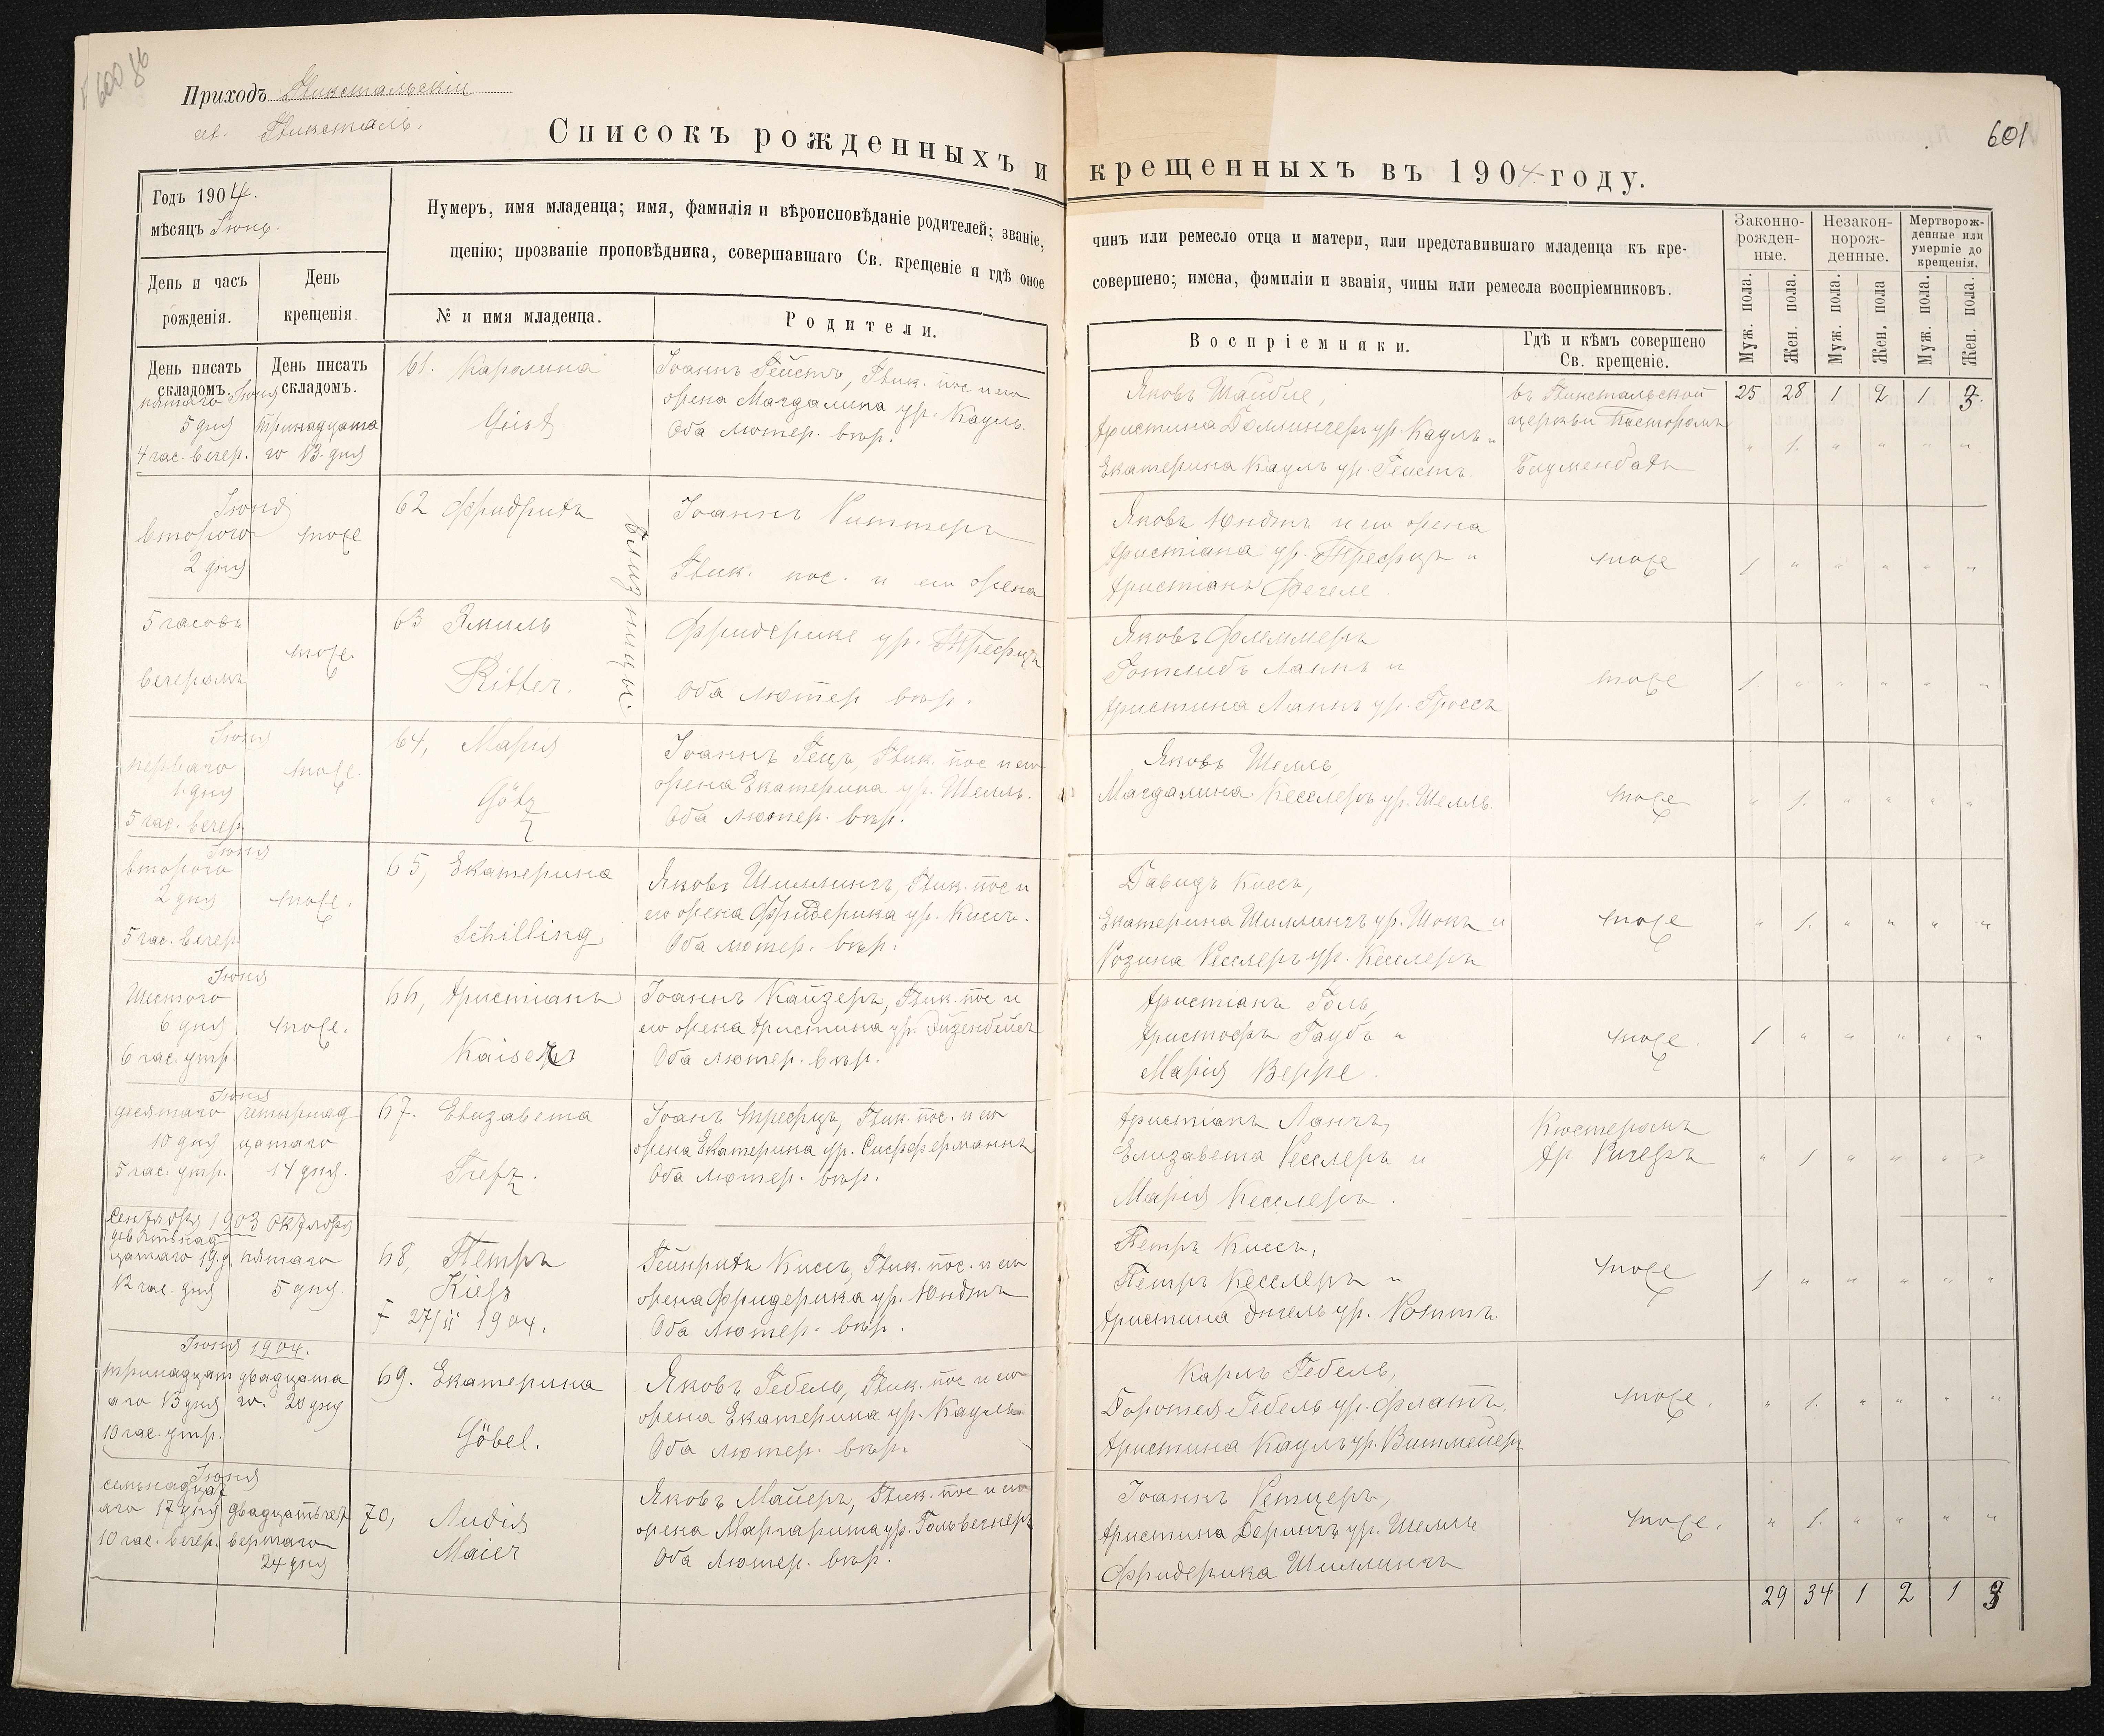 600 86
Приходъ Гликстальскій
м. Гликсталь.
601
Списокъ рожденныхъ и крещенныхъ въ 1904 году.
Годъ 1904.
мѣсяцъ Іюнь.
Нумеръ, имя младенца; имя, фамилія и вѣроисповѣданіе родителей; званіе, чинъ или ремесло отца и матери, или представившаго младенца къ кре-
щенію; прозваніе проповѣдника, совершавшаго Св. крещеніе и гдѣ оное совершено; имена, фамиліи и званія, чины или ремесла воспріемниковъ.
День и часъ рожденія.
День крещенія.
№ и имя младенца.
Родители.
Воспріемники.
Гдѣ и кѣмъ совершено Св. крещеніе.
Законно-рожден-ные.
Незакон-норож-денные.
Мертворож-денные или умершіе до крещенія.
Муж. пола.
Жен. пола.
Муж. пола.
Жен. пола
Муж. пола.
Жен. пола.
День писать складомъ.
День писать складомъ.
пятаго Іюня
5 дня
4 час. вечер.
тринадцата
го 13 дня
61. Каролина
Geist.
Іоаннъ Гейстъ, Глик. пос и его
жена Магдалина ур. Кауль.
Оба лютер. вѣр.
Яковъ Шайбле,
Христина Доллингеръ ур. Кауль и
Екатерина Кауль ур. Гейстъ.
въ Гликстальской
церкви Пасторомъ
25 28 1 2 1 3.
" 1. " " " "
Іюня
второго
2 дня
тоже
62 Фридрихъ
Близнецы.
Іоаннъ Риттеръ
Глик. пос. и его жена
Яковъ Юндтъ и его жена
Христіана ур. Трефцъ и
Христіанъ Фегеле
тоже
1 " " " " "
5 часовъ
вечеромъ
тоже.
63 Эмиль
Ritter.
Фридерике ур. Трефцъ
Оба лютер вѣр.
Яковъ Флеммеръ
Готлибъ Ланнъ и
Христина Ланнъ ур. Гроссъ
тоже
1. " " " " "
Іюня
перваго
1. дня
5 час. вечер.
тоже.
64, Марія
Götz
Іоаннъ Гецъ, Глик. пос и его
жена Екатерина ур. Шелль.
Оба лютер. вѣр.
Яковъ Шелль,
Магдалина Кесслеръ ур. Шелль.
тоже
" 1. " " " "
Іюня
второго
2 дня
5 час. вечер.
тоже.
65, Екатерина
Schilling
Яковъ Шиллингъ, Глик. пос и
его жена Фридерика ур. Киссъ.
Оба лютер. вѣр.
Давидъ Киссъ,
Екатерина Шиллингъ ур. Шокъ и
РозинаРесслеръ ур. Кесслеръ
тоже
" 1. " " " "
Іюня
Шестого
6 дня
6 час. утр.
тоже.
66, Христіанъ
Kaiser
Іоаннъ Кайзеръ, Глик. пос и
его жена Христина ур. Эйзенбейсъ
Оба лютер. вѣр.
Христіанъ Голь,
Христофъ Гаубъ и
Марія Верре.
тоже.
1 " " " " "
Іюня
десятаго
10 дня
5 час. утр.
четырнад
цатаго
14 дня.
67. Елизавета
Trefz.
Іоанъ Трефцъ, Глик. пос. и его
жена Екатерина ур. Сифферманнъ
Оба лютер. вѣр.
Христіанъ Лангъ,
Елизавета Ресслеръ и
Марія Кесслеръ.
Кюстеромъ
" 1 " " " "
Сентября 1903 Октября
девятьнад
цатаго 19 д.
12 час. дня
пятаго
5 дня.
68, Петръ
Kieß
† 27/II 1904.
Гейнрихъ Киссъ, Глик. пос. и его
жена Фридерика ур. Юндтъ
Оба лютер. вѣр.
Петръ Киссъ,
Петръ Кесслеръ и
Христина Энгель ур. Роттъ.
тоже
1 " " " " "
Іюня 1904.
тринадцат
аго 13 дня
10 час. утр.
двадцата
го. 20 дня
69. Екатерина
Göbel.
Яковъ Гебель, Глик. пос и его
жена Екатерина ур. Кауль
Оба лютер. вѣр.
Карлъ Гебель,
Доротея Гебель ур. Флатъ,
Христина Кауль ур. Витмейеръ
тоже.
" 1. " " " "
Іюня
семьнадцат
аго 17 дня
10 час. вечер.
двадцатьчет
вертаго
24 дня
70, Лидія
Maier
Яковъ Майеръ, Глик. пос и его
жена Маргарита ур. Гольвегнеръ
Оба лютер. вѣр.
Іоаннъ Ретцеръ,
Христина Берингъ ур. Шелль
Фридерика Шиллингъ
тоже.
" 1. " " " "
29 34 1 2 1 3